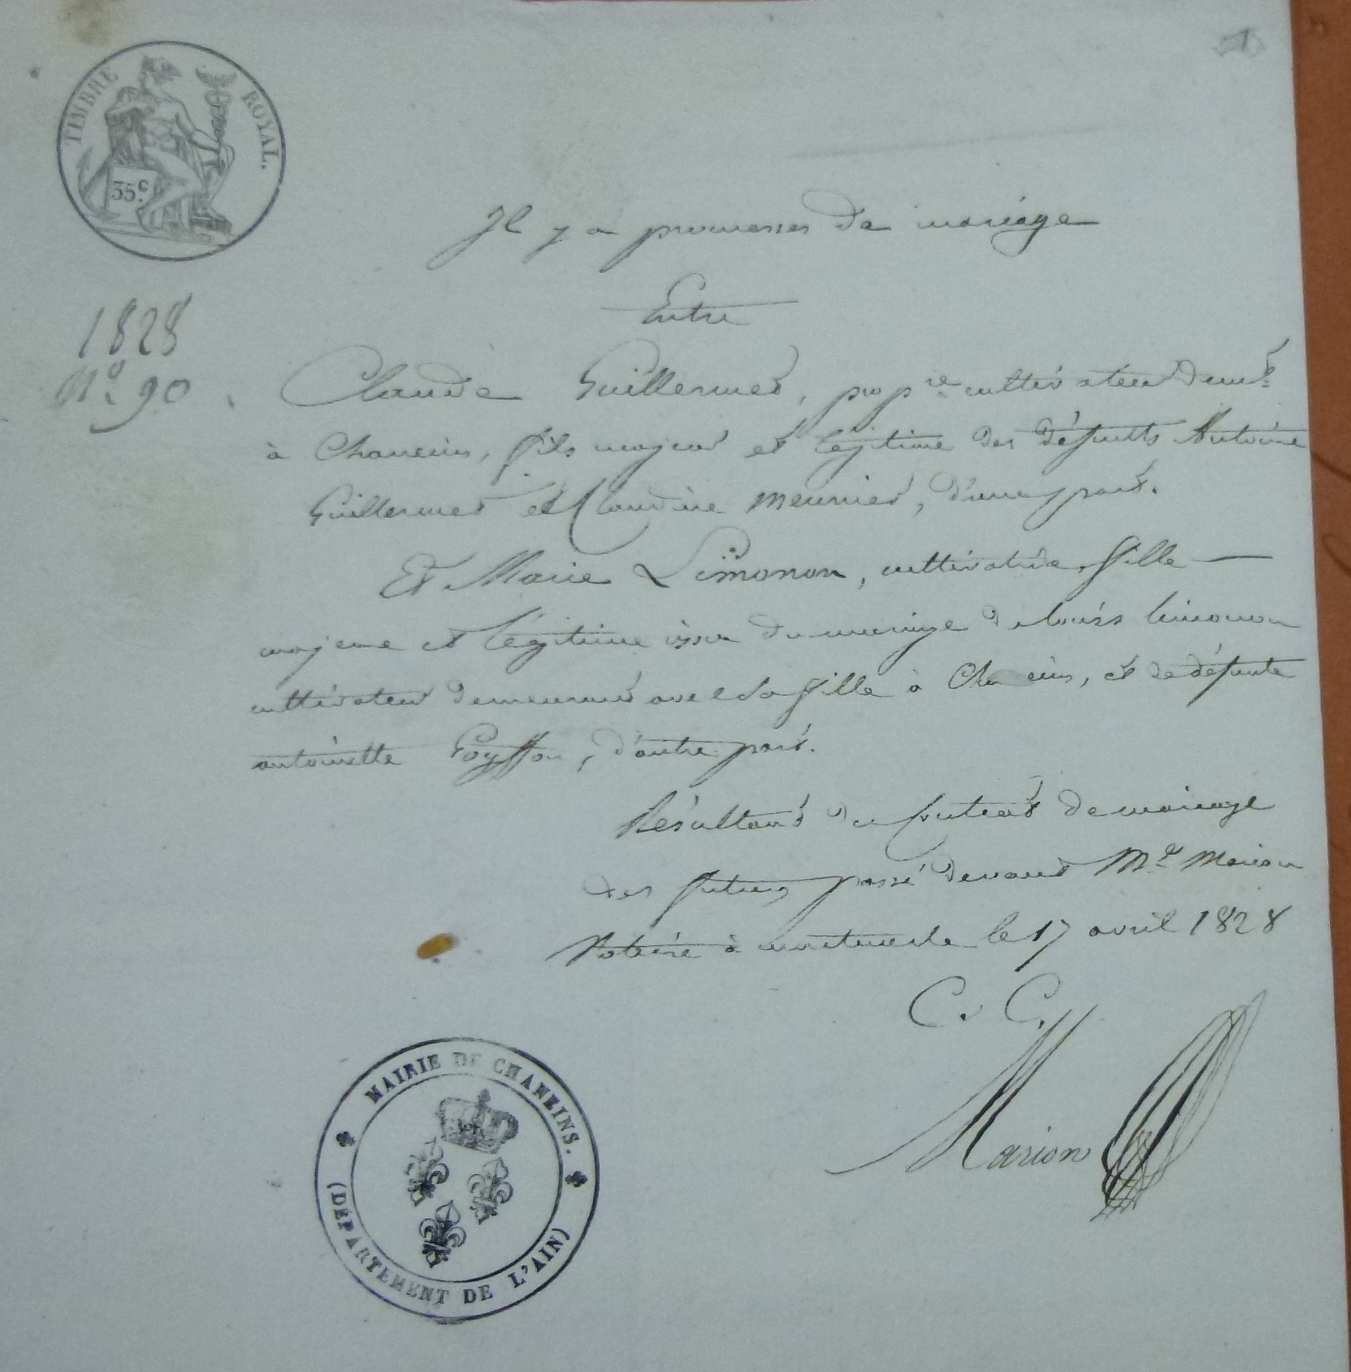 TIMBRE ROYAL.
35 c.
1
Il y a promesses de mariage
Entre
1828
No. 90.
Claude Guillermet, propre. cultivateur demt.
à Chaneins, fils majeur et légitime des défunts Antoine
Guillermet et Claudine Meunier, d'une part.
Et Marie Limonon, cultivatrice, fille
majeure et légitime issue du mariage de Louis Limonon
cultivateur demeurant avec sa fille à Chaneins, et de défunte
antoinette Poysson, d'autre part.
Résultant du contrat de mariage
des futurs passé devant Me. Marion
Notaire à le 17 avril 1828
C. C.
Marion
MAIRIE DE CHANEINS.
(DÉPARTEMENT DE L'AIN)